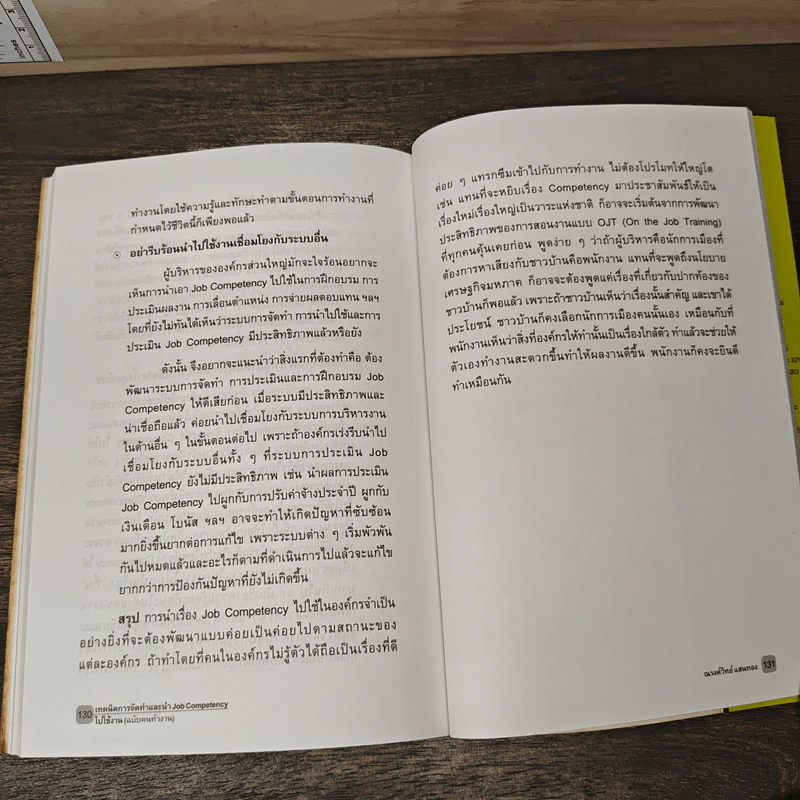 INCHES
ทำงานโดยใช้ความรู้และทักษะทำตามขั้นตอนการทำงานที่
กำหนดไว้ชีวิตนี้ก็เพียงพอแล้ว
อย่ารีบร้อนนำไปใช้งานเชื่อมโยงกับระบบอื่น
ผู้บริหารขององค์กรส่วนใหญ่มักจะใจร้อนอยากจะ
เห็นการนำเอา Job Competency ไปใช้ในการฝึกอบรม การ
ประเมินผลงาน การเลื่อนตำแหน่ง การจ่ายผลตอบแทน ฯลฯ
โดยที่ยังไม่ทันได้เห็นว่าระบบการจัดทำ การนำไปใช้และการ
ประเมิน Job Competency มีประสิทธิภาพแล้วหรือยัง
ดังนั้น จึงอยากจะแนะนำว่าสิ่งแรกที่ต้องทำคือ ต้อง
พัฒนาระบบการจัดทำ การประเมินและการฝึกอบรม Job
Competency ให้ดีเสียก่อน เมื่อระบบมีประสิทธิภาพและ
น่าเชื่อถือแล้ว ค่อยนำไปเชื่อมโยงกับระบบการบริหารงาน
ในด้านอื่น ๆ ในขั้นตอนต่อไป เพราะถ้าองค์กรเร่งรีบนำไป
เชื่อมโยงกับระบบอื่นทั้ง ๆ ที่ระบบการประเมิน Job
Competency ยังไม่มีประสิทธิภาพ เช่น นำผลการประเมิน
Job Competency ไปผูกกับการปรับค่าจ้างประจำปี ผูกกับ
เงินเดือน โบนัส ฯลฯ อาจจะทำให้เกิดปัญหาที่ซับซ้อน
มากยิ่งขึ้นยากต่อการแก้ไข เพราะระบบต่าง ๆ เริ่มพัวพัน
กันไปหมดแล้วและอะไรก็ตามที่ดำเนินการไปแล้วจะแก้ไข
ยากกว่าการป้องกันปัญหาที่ยังไม่เกิดขึ้น
สรุป การนำเรื่อง Job Competency ไปใช้ในองค์กรจำเป็น
อย่างยิ่งที่จะต้องพัฒนาแบบค่อยเป็นค่อยไปตามสถานะของ
แต่ละองค์กร ถ้าทำโดยที่คนในองค์กรไม่รู้ตัวได้ถือเป็นเรื่องที่ดี
130 เทคนิคการจัดทำและนำ Job Competency
ไปใช้งาน (ฉบับคนทำงาน)
ค่อย ๆ แทรกซึมเข้าไปกับการทำงาน ไม่ต้องโปรโมทให้ใหญ่โต
เช่น แทนที่จะหยิบเรื่อง Competency มาประชาสัมพันธ์ให้เป็น
เรื่องใหม่เรื่องใหญ่เป็นวาระแห่งชาติ ก็อาจจะเริ่มต้นจากการพัฒนา
ประสิทธิภาพของการสอนงานแบบ OJT (On the Job Training)
ที่ทุกคนคุ้นเคยก่อน พูดง่าย ๆ ว่าถ้าผู้บริหารคือนักการเมืองที่
ต้องการหาเสียงกับชาวบ้านคือพนักงาน แทนที่จะพูดถึงนโยบาย
เศรษฐกิจมหภาค ก็อาจจะต้องพูดแค่เรื่องที่เกี่ยวกับปากท้องของ
ชาวบ้านก็พอแล้ว เพราะถ้าชาวบ้านเห็นว่าเรื่องนั้นสำคัญ และเขาได้
ประโยชน์ ชาวบ้านก็คงเลือกนักการเมืองคนนั้นเอง เหมือนกับที่
พนักงานเห็นว่าสิ่งที่องค์กรให้ทำนั้นเป็นเรื่องใกล้ตัว ทำแล้วจะช่วยให้
ตัวเองทำงานสะดวกขึ้นทำให้ผลงานดีขึ้น พนักงานก็คงจะยินดี
ทำเหมือนกัน
ณรงค์วิทย์ แสนทอง 131